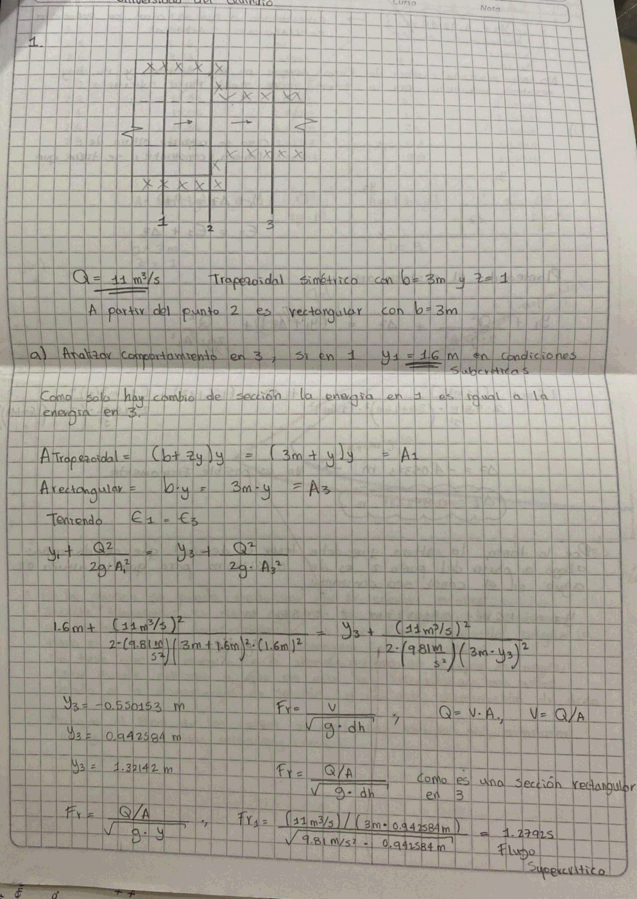 Universidad del Quindío
Curso
Nota
1.
1
2
3
Q = 11 m³/s Trapezoidal simétrico con b = 3m y z = 1
A partir del punto 2 es rectangular con b = 3m
a) Analizar comportamiento en 3, si en 1 y₁ = 1.6 m en condiciones
subcríticas
Como solo hay cambio de sección la energía en 1 es igual a la
energía en 3.
A Trapezoidal = (b + zy)y = (3m + y)y = A₁
A rectangular = b·y = 3m·y = A₃
Teniendo E₁ = E₃
y₁ + Q²/(2g·A₁²) = y₃ + Q²/(2g·A₃²)
1.6m + (11m³/s)²/(2·(9.81 m/s²)(3m + 1.6m)²·(1.6m)²) = y₃ + (11m³/s)²/(2·(9.81 m/s²)(3m·y₃)²)
y₃ = -0.550153 m Fr = V/√(g·dh) ; Q = V·A, V = Q/A
y₃ = 0.942584 m
y₃ = 1.32142 m Fr = (Q/A)/√(g·dh) como es una sección rectangular
en 3
Fr = (Q/A)/√(g·y) ; Fr₁ = ((11m³/s)/(3m·0.942584m))/√(9.81 m/s² · 0.942584m) = 1.27925
Flujo
Supercrítico